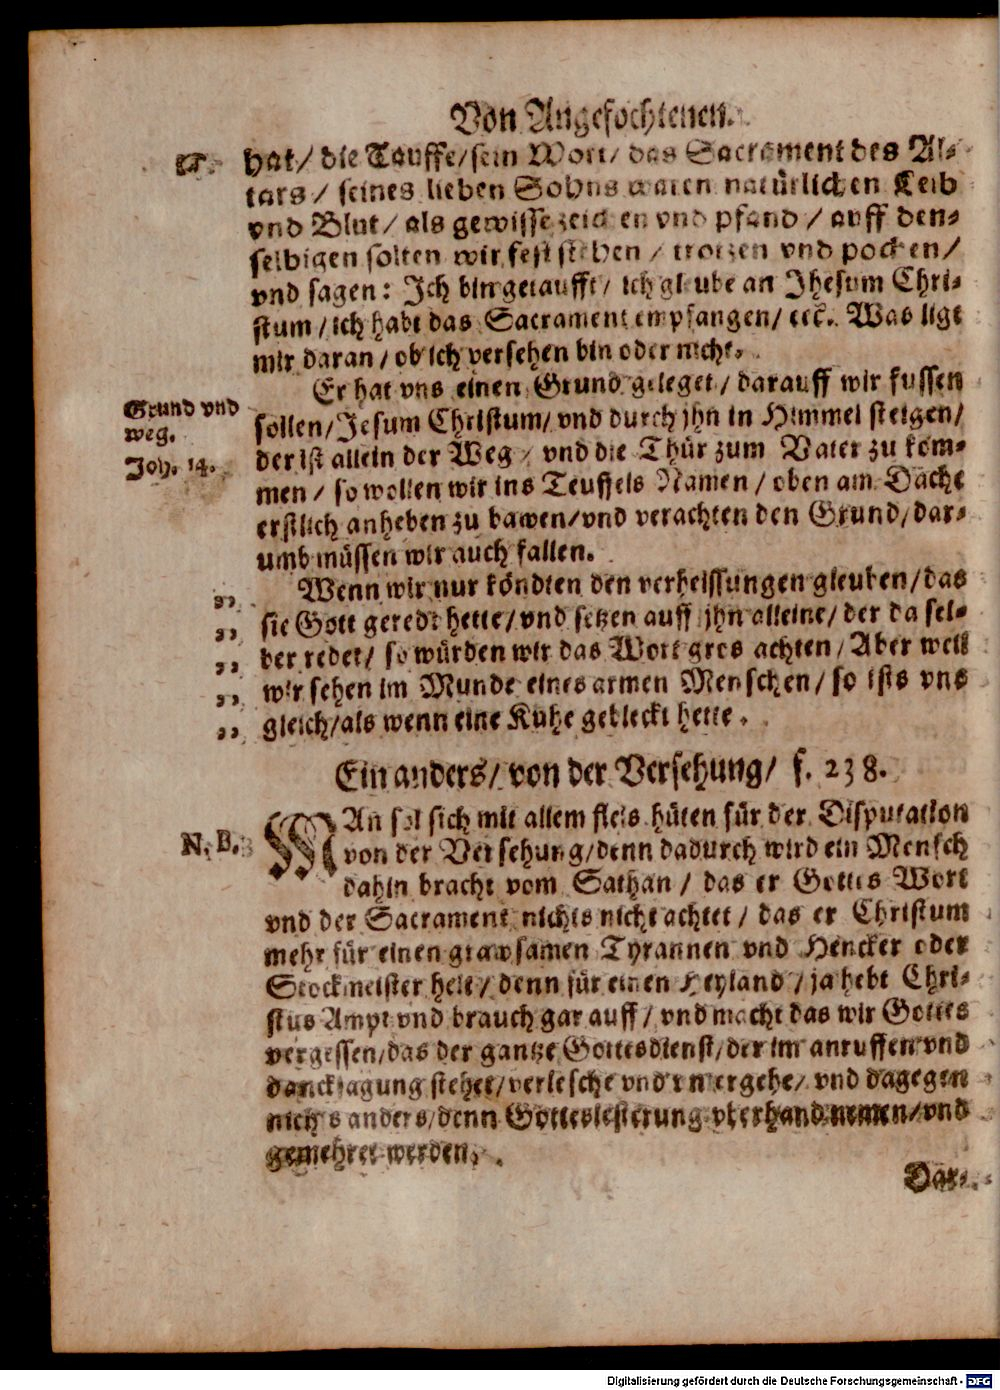 Von Angefochtenen.
hat/ die Tauffe/sein Wort/ das Sacrament des Al-
tars / seines lieben Sohns waren natürlichen Leib
vnd Blut/ als gewisse zeichen vnd pfand / auff den-
selbigen solten wir fest stehen / trotzen vnd pochen/
vnd sagen: Ich bin getaufft/ ich gleube an Jhesum Chri-
stum /ich habe das Sacrament empfangen/ etc. Was ligt
mir daran / ob ich versehen bin oder nicht.
Er hat vns einen Grund geleget/ darauff wir fussen
Grund vnd
weg.
Joh. 14.
sollen/Jesum Christum/ vnd durch jhn in Himmel steigen/
der ist allein der Weg / vnd die Thür zum Vater zu kom-
men / so wollen wir ins Teuffels Namen / oben am Dache
erstlich anheben zu bawen/vnd verachten den Grund/dar-
umb müssen wir auch fallen.
„ Wenn wir nur köndten den verheissungen gleuben/das
„ sie Gott geredt hette/vnd setzen auff jhn alleine/ der da sel-
„ der redet/ so würden wir das Wort gros achten/Aber weil
„ wir sehen im Munde eines armen Menschen/ so ists vns
„ gleich/als wenn eine Kuhe gebleckt hette.
Ein anders/ von der Versehung/ f. 238.
N. B.
MAn sol sich mit allem fleis hüten für der Disputation
von der Versehung/denn dadurch wird ein Mensch
dahin bracht vom Sathan / das er Gottes Wort
vnd der Sacrament nichts nicht achtet / das er Christum
mehr für einen grawsamen Tyrannen vnd Hencker oder
Stockmeister helt/ denn für einen Heyland / ja hebt Chri-
stus Ampt vnd brauch gar auff/ vnd macht das wir Gottes
vergessen/das der gantze Gottesdienst/der im anruffen vnd
dancksagung stehet/verlesche vnd vntergehe/ vnd dagegen
nichts anders/denn Gotteslesterung vberhand nemen/vnd
gemehret werden.
Dar-
Digitalisierung gefördert durch die Deutsche Forschungsgemeinschaft - DFG